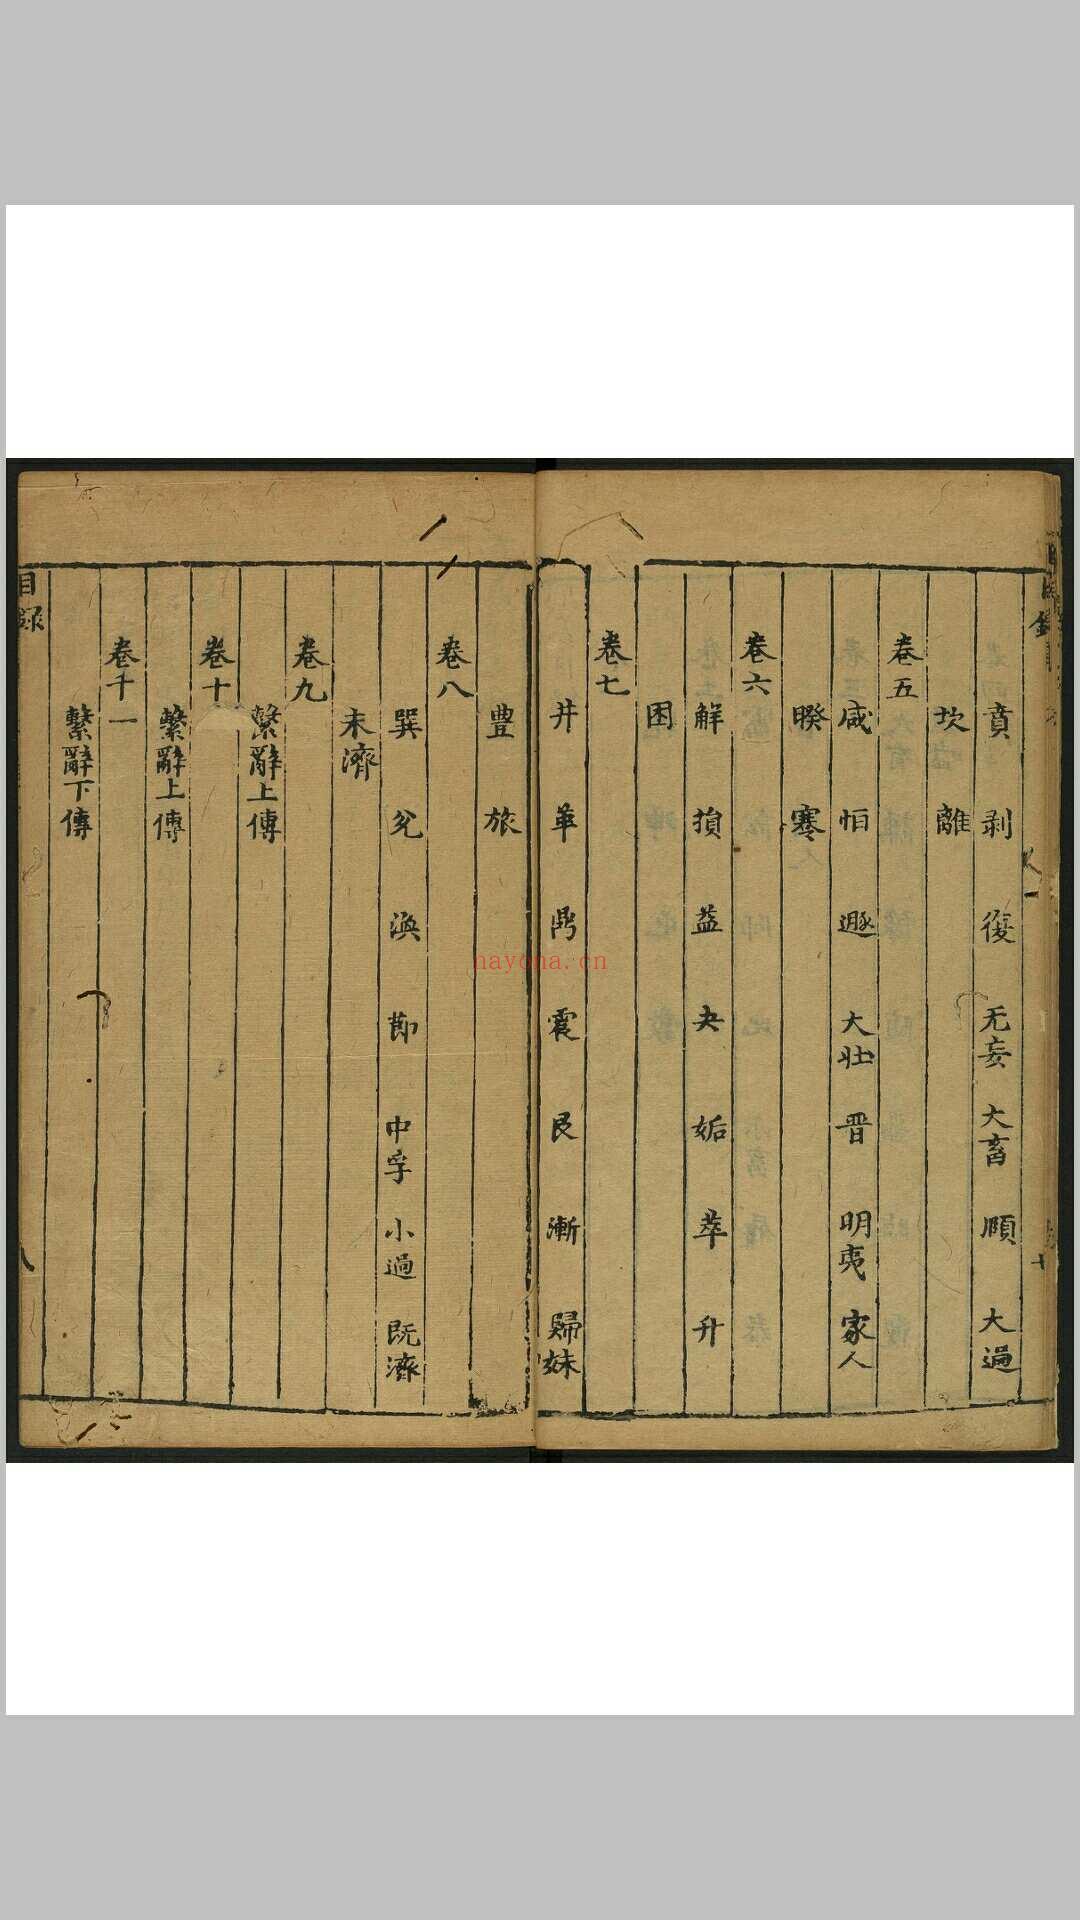 賁 剥 復 无妄 大畜 頤 大過
坎 離
卷五
咸 恒 遯 大壯 晋 明夷 家人
睽 蹇
卷六
解 損 益 夬 姤 萃 升
困
卷七
井 革 鼎 震 艮 漸 歸妹
豊 旅
卷八
巽 兊 渙 節 中孚 小過 既濟
未濟
卷九
繫辭上傳
卷十
繫辭上傳
卷十一
繫辭下傳
目録
nayona.cn